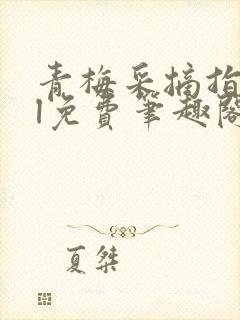 青梅采摘指
l免费笔趣阁
夏桀